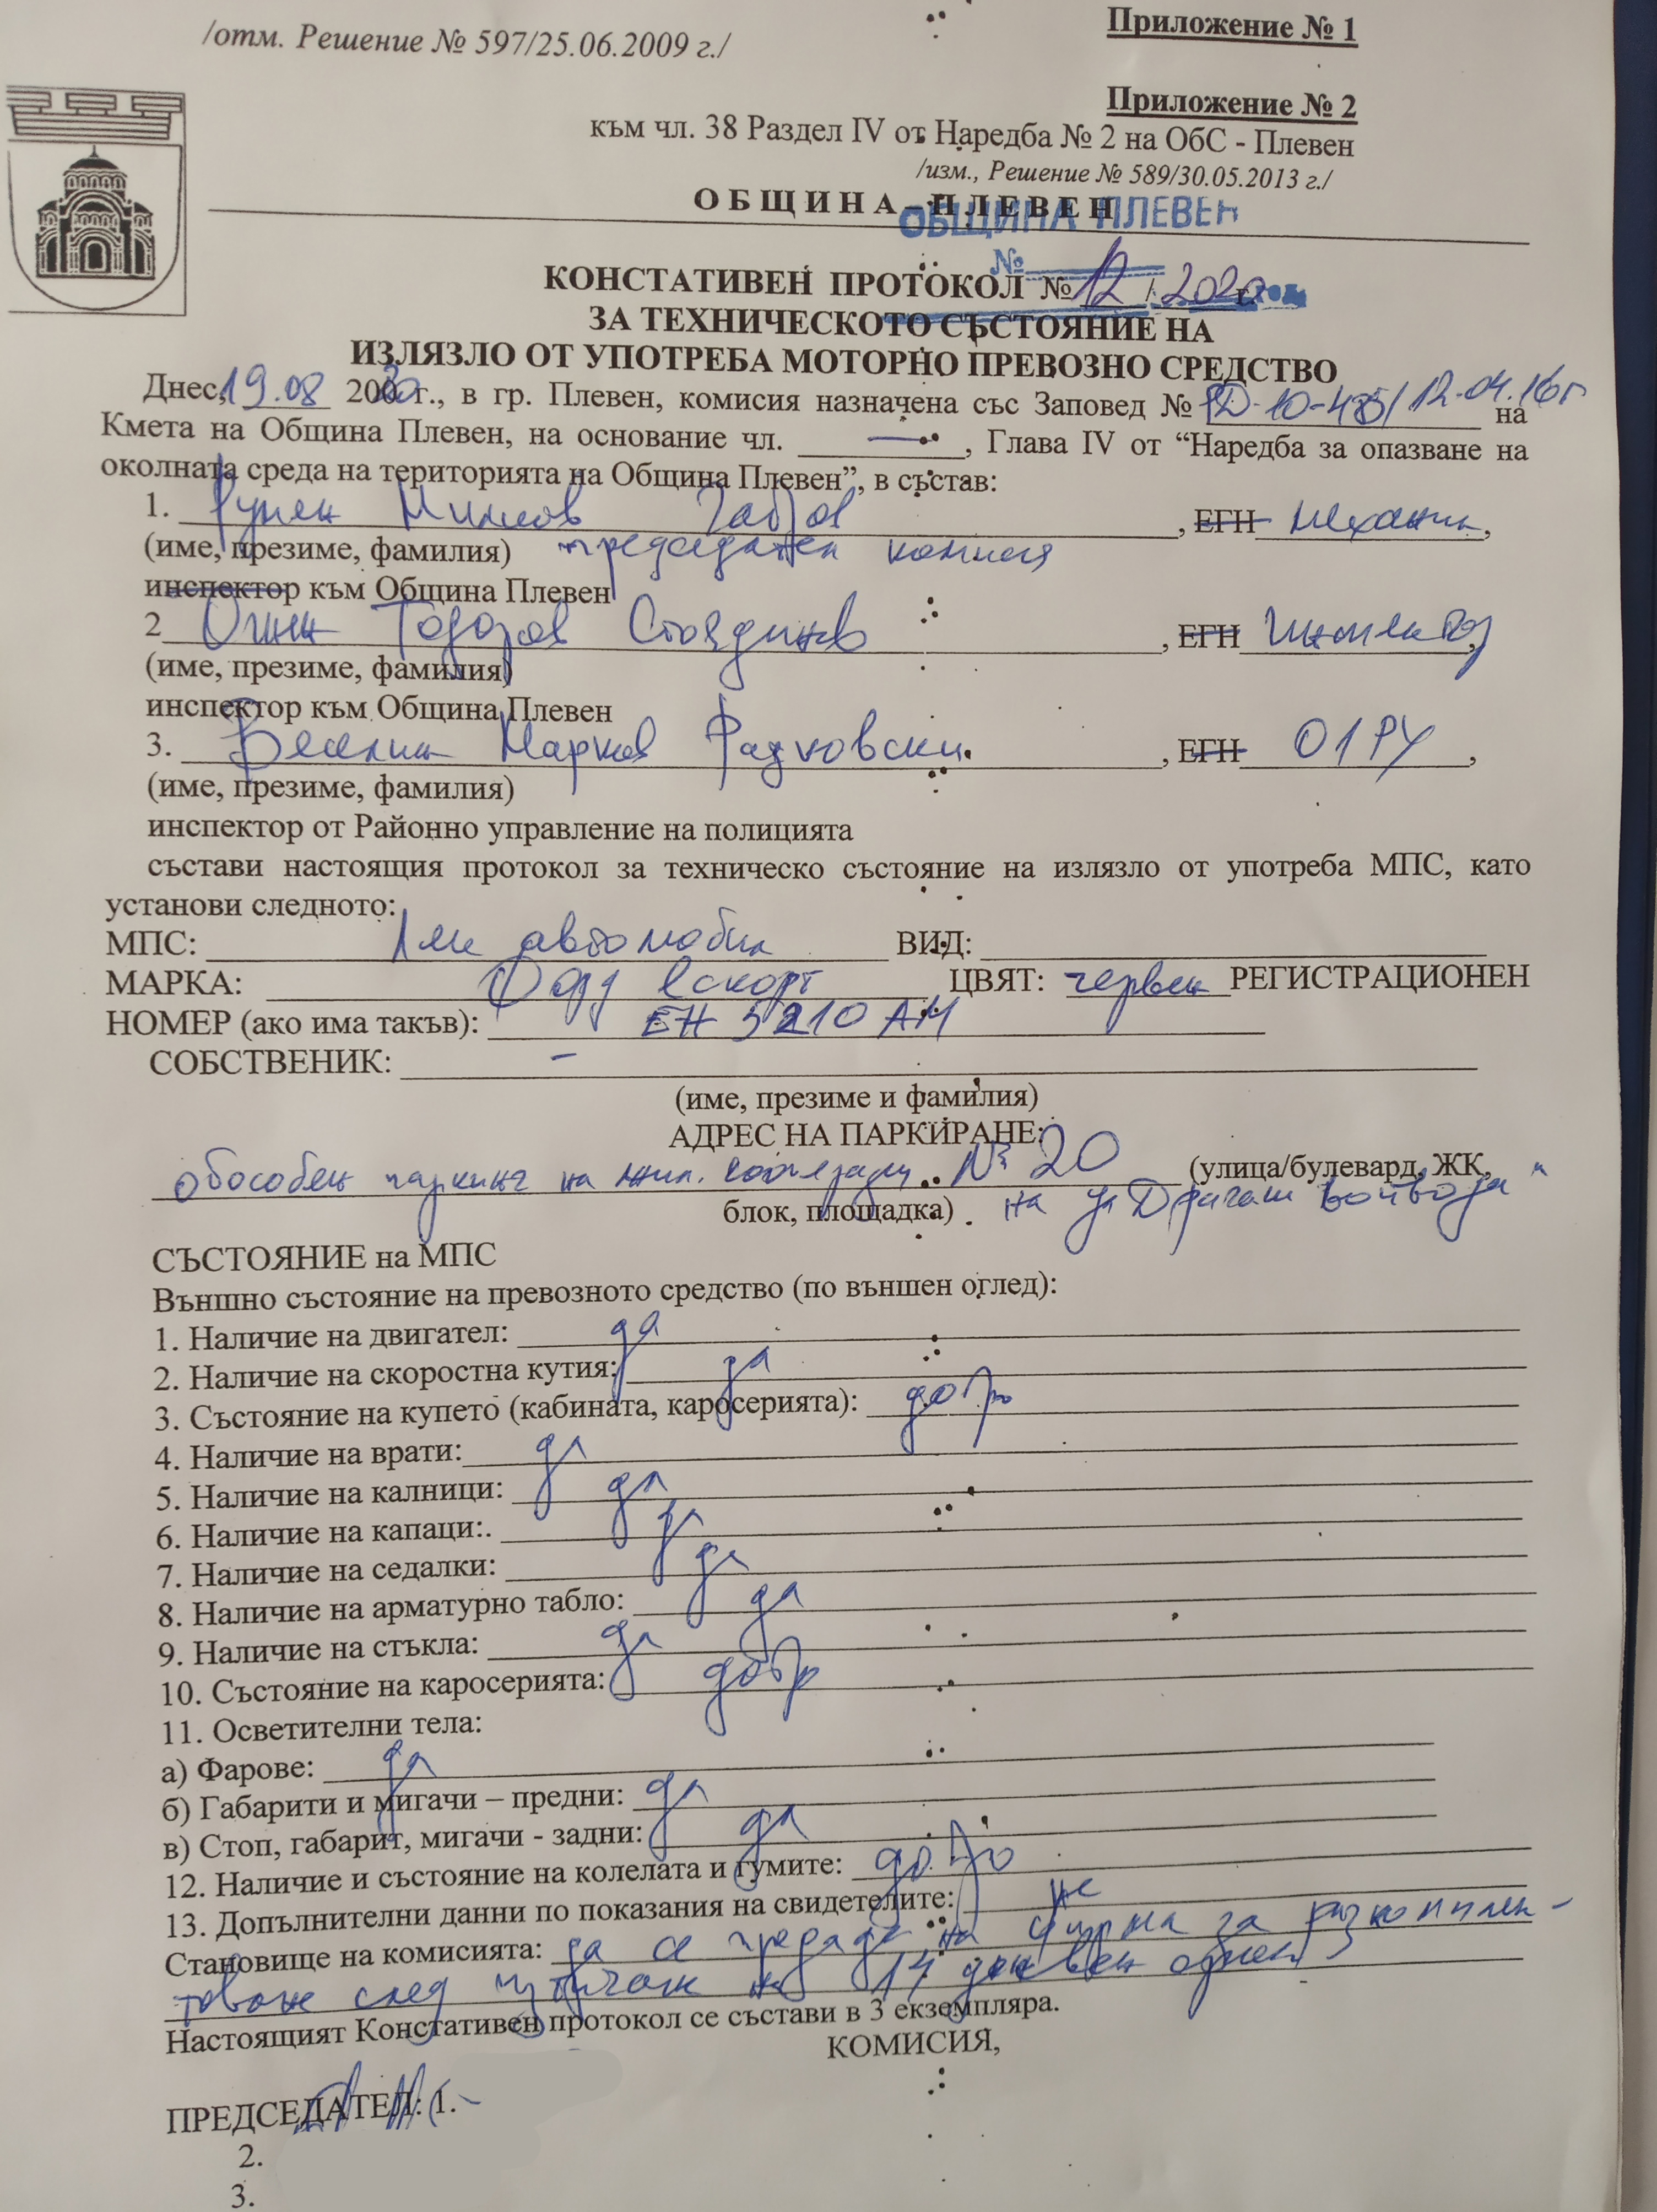 /отм. Решение № 597/25.06.2009 г./
Приложение № 1
Приложение № 2
към чл. 38 Раздел IV от Наредба № 2 на ОбС - Плевен
/изм., Решение № 589/30.05.2013 г./
ОБЩИНА ПЛЕВЕН
ОБЩИНА ПЛЕВЕН
КОНСТАТИВЕН ПРОТОКОЛ № 12 / 2020 г.
ЗА ТЕХНИЧЕСКОТО СЪСТОЯНИЕ НА
ИЗЛЯЗЛО ОТ УПОТРЕБА МОТОРНО ПРЕВОЗНО СРЕДСТВО
Днес, 19.08 2020 г., в гр. Плевен, комисия назначена със Заповед № РД-10-485/12.04.16г на
Кмета на Община Плевен, на основание чл. —, Глава IV от “Наредба за опазване на
околната среда на територията на Община Плевен”, в състав:
1. Румен Минков, ЕГН механик,
(име, презиме, фамилия) председател комисия
инспектор към Община Плевен
2 Огнян Тодоров Стоядинов, ЕГН инспектор,
(име, презиме, фамилия)
инспектор към Община Плевен
3. Веселин Марков Радковски, ЕГН 01 РУ,
(име, презиме, фамилия)
инспектор от Районно управление на полицията
състави настоящия протокол за техническо състояние на излязло от употреба МПС, като
установи следното:
МПС: Лек автомобил ВИД:
МАРКА: Форд Ескорт ЦВЯТ: червен РЕГИСТРАЦИОНЕН
НОМЕР (ако има такъв): ЕН 5210 АМ
СОБСТВЕНИК: –
(име, презиме и фамилия)
АДРЕС НА ПАРКИРАНЕ:
обособен паркинг на жил. № 20 (улица/булевард, ЖК,
блок, площадка) на ул Драган Войвода"
СЪСТОЯНИЕ на МПС
Външно състояние на превозното средство (по външен оглед):
1. Наличие на двигател: да
2. Наличие на скоростна кутия: да
3. Състояние на купето (кабината, каросерията): добро
4. Наличие на врати: да
5. Наличие на калници: да
6. Наличие на капаци:. да
7. Наличие на седалки: да
8. Наличие на арматурно табло: да
9. Наличие на стъкла: да
10. Състояние на каросерията: добро
11. Осветителни тела:
а) Фарове: да
б) Габарити и мигачи – предни: да
в) Стоп, габарит, мигачи - задни: да
12. Наличие и състояние на колелата и гумите: добро
13. Допълнителни данни по показания на свидетелите: не
Становище на комисията: да се предаде на фирма за разкомплек-
товане след изтичане на 14 дневен
Настоящият Констативен протокол се състави в 3 екземпляра.
КОМИСИЯ,
ПРЕДСЕДАТЕЛ: 1.
2.
3.